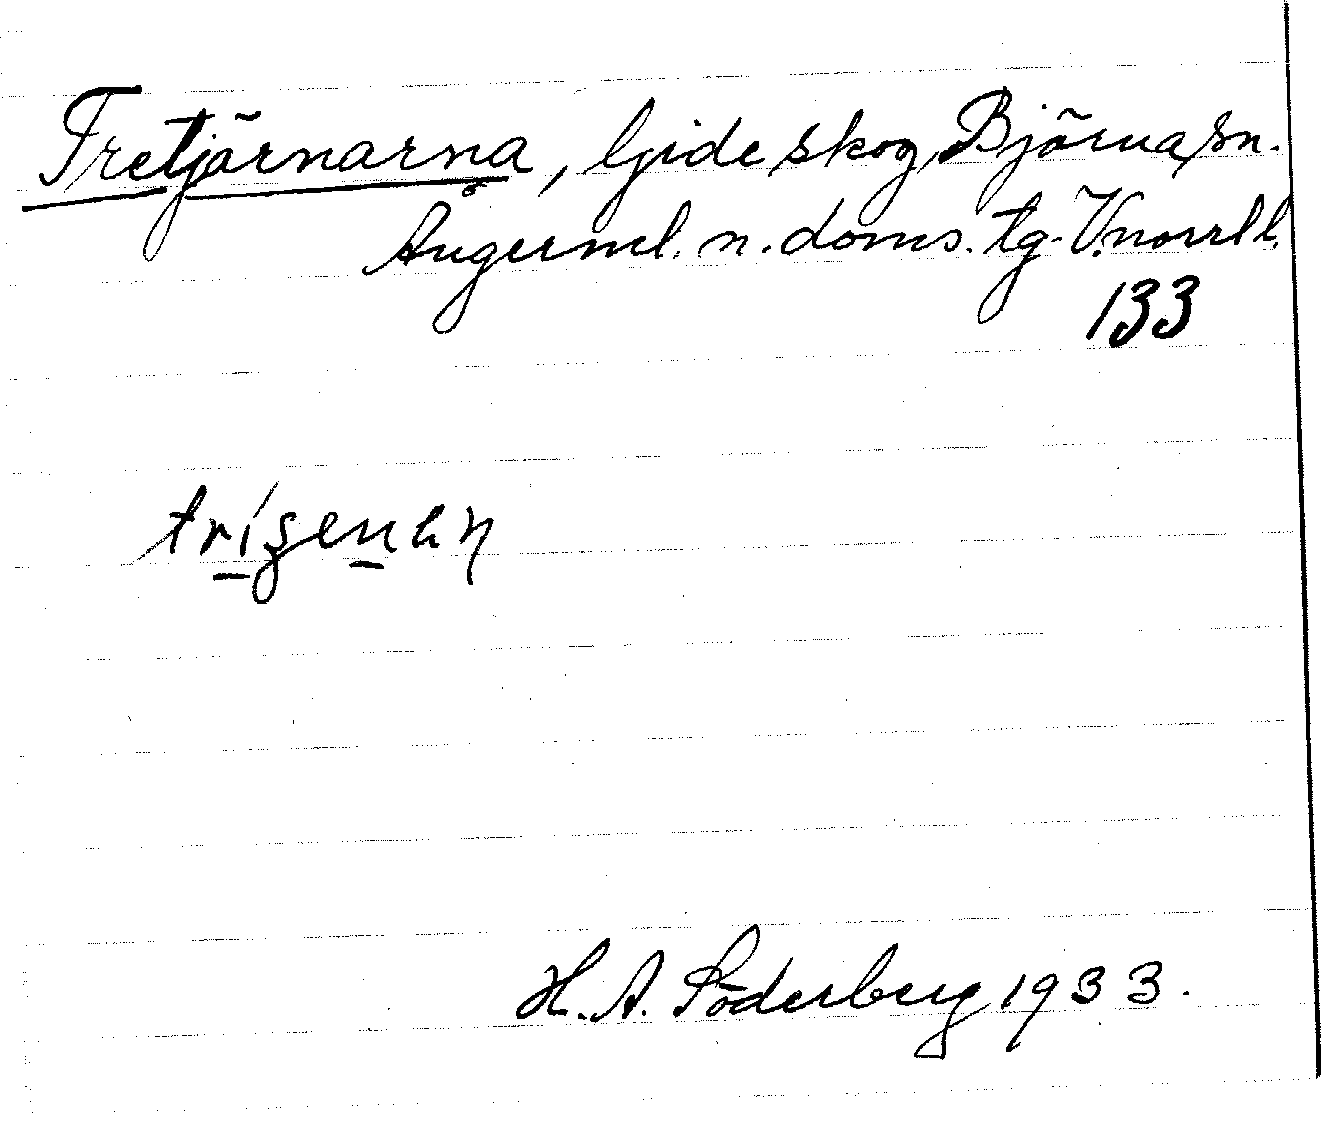 Tretjärnarna, Gideskog, Björna sn.
Ångerml. n. doms. tg. V.norrl l.
133
H. A. Söderberg 1933.